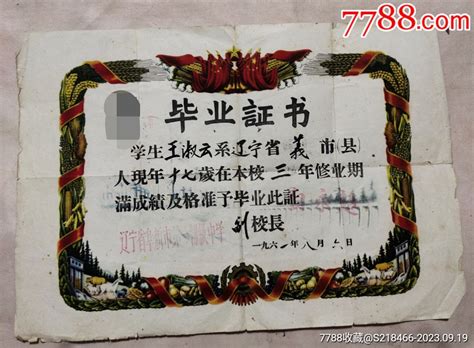 7788.com
毕业証书
学生王淑云系辽宁省義市(县)
人現年十七歲在本校三年修业期
滿成績及格准予毕业此証
校長
一九六一年八月六日
7788收藏@S218466-2023.09.19